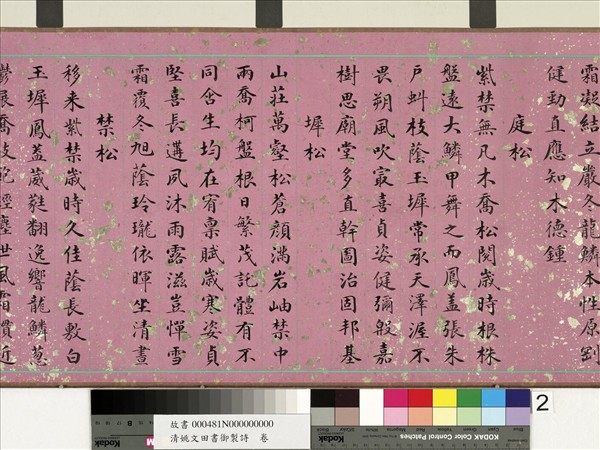 霜凝結立嚴冬龍鱗本性原剛
健勁直應知木德鍾
庭松
紫禁無凡木喬松閱歲時根株
盤遠大鱗甲舞之而鳳蓋張朱
戶虯枝蔭玉墀常承天澤渥不
畏朔風吹㝡喜貞姿健彌殷嘉
樹思廟堂多直幹圖治固邦基
墀松
山莊萬壑松蒼顏滿岩岫禁中
兩喬柯盤根日繁茂託體有不
同含生均在宥稟賦歲寒姿貞
堅喜長遘夙沐雨露滋豈憚雪
霜覆冬旭蔭玲瓏依暉坐清晝
禁松
移來紫禁歲時久佳蔭長敷白
玉墀鳳蓋葳蕤翻逸響龍鱗蔥
鬱展喬枝飽經塵世風霜慣近
故書 000481N000000000
清姚文田書御製詩 卷
Kodak
KODAK Color Control Patches
2